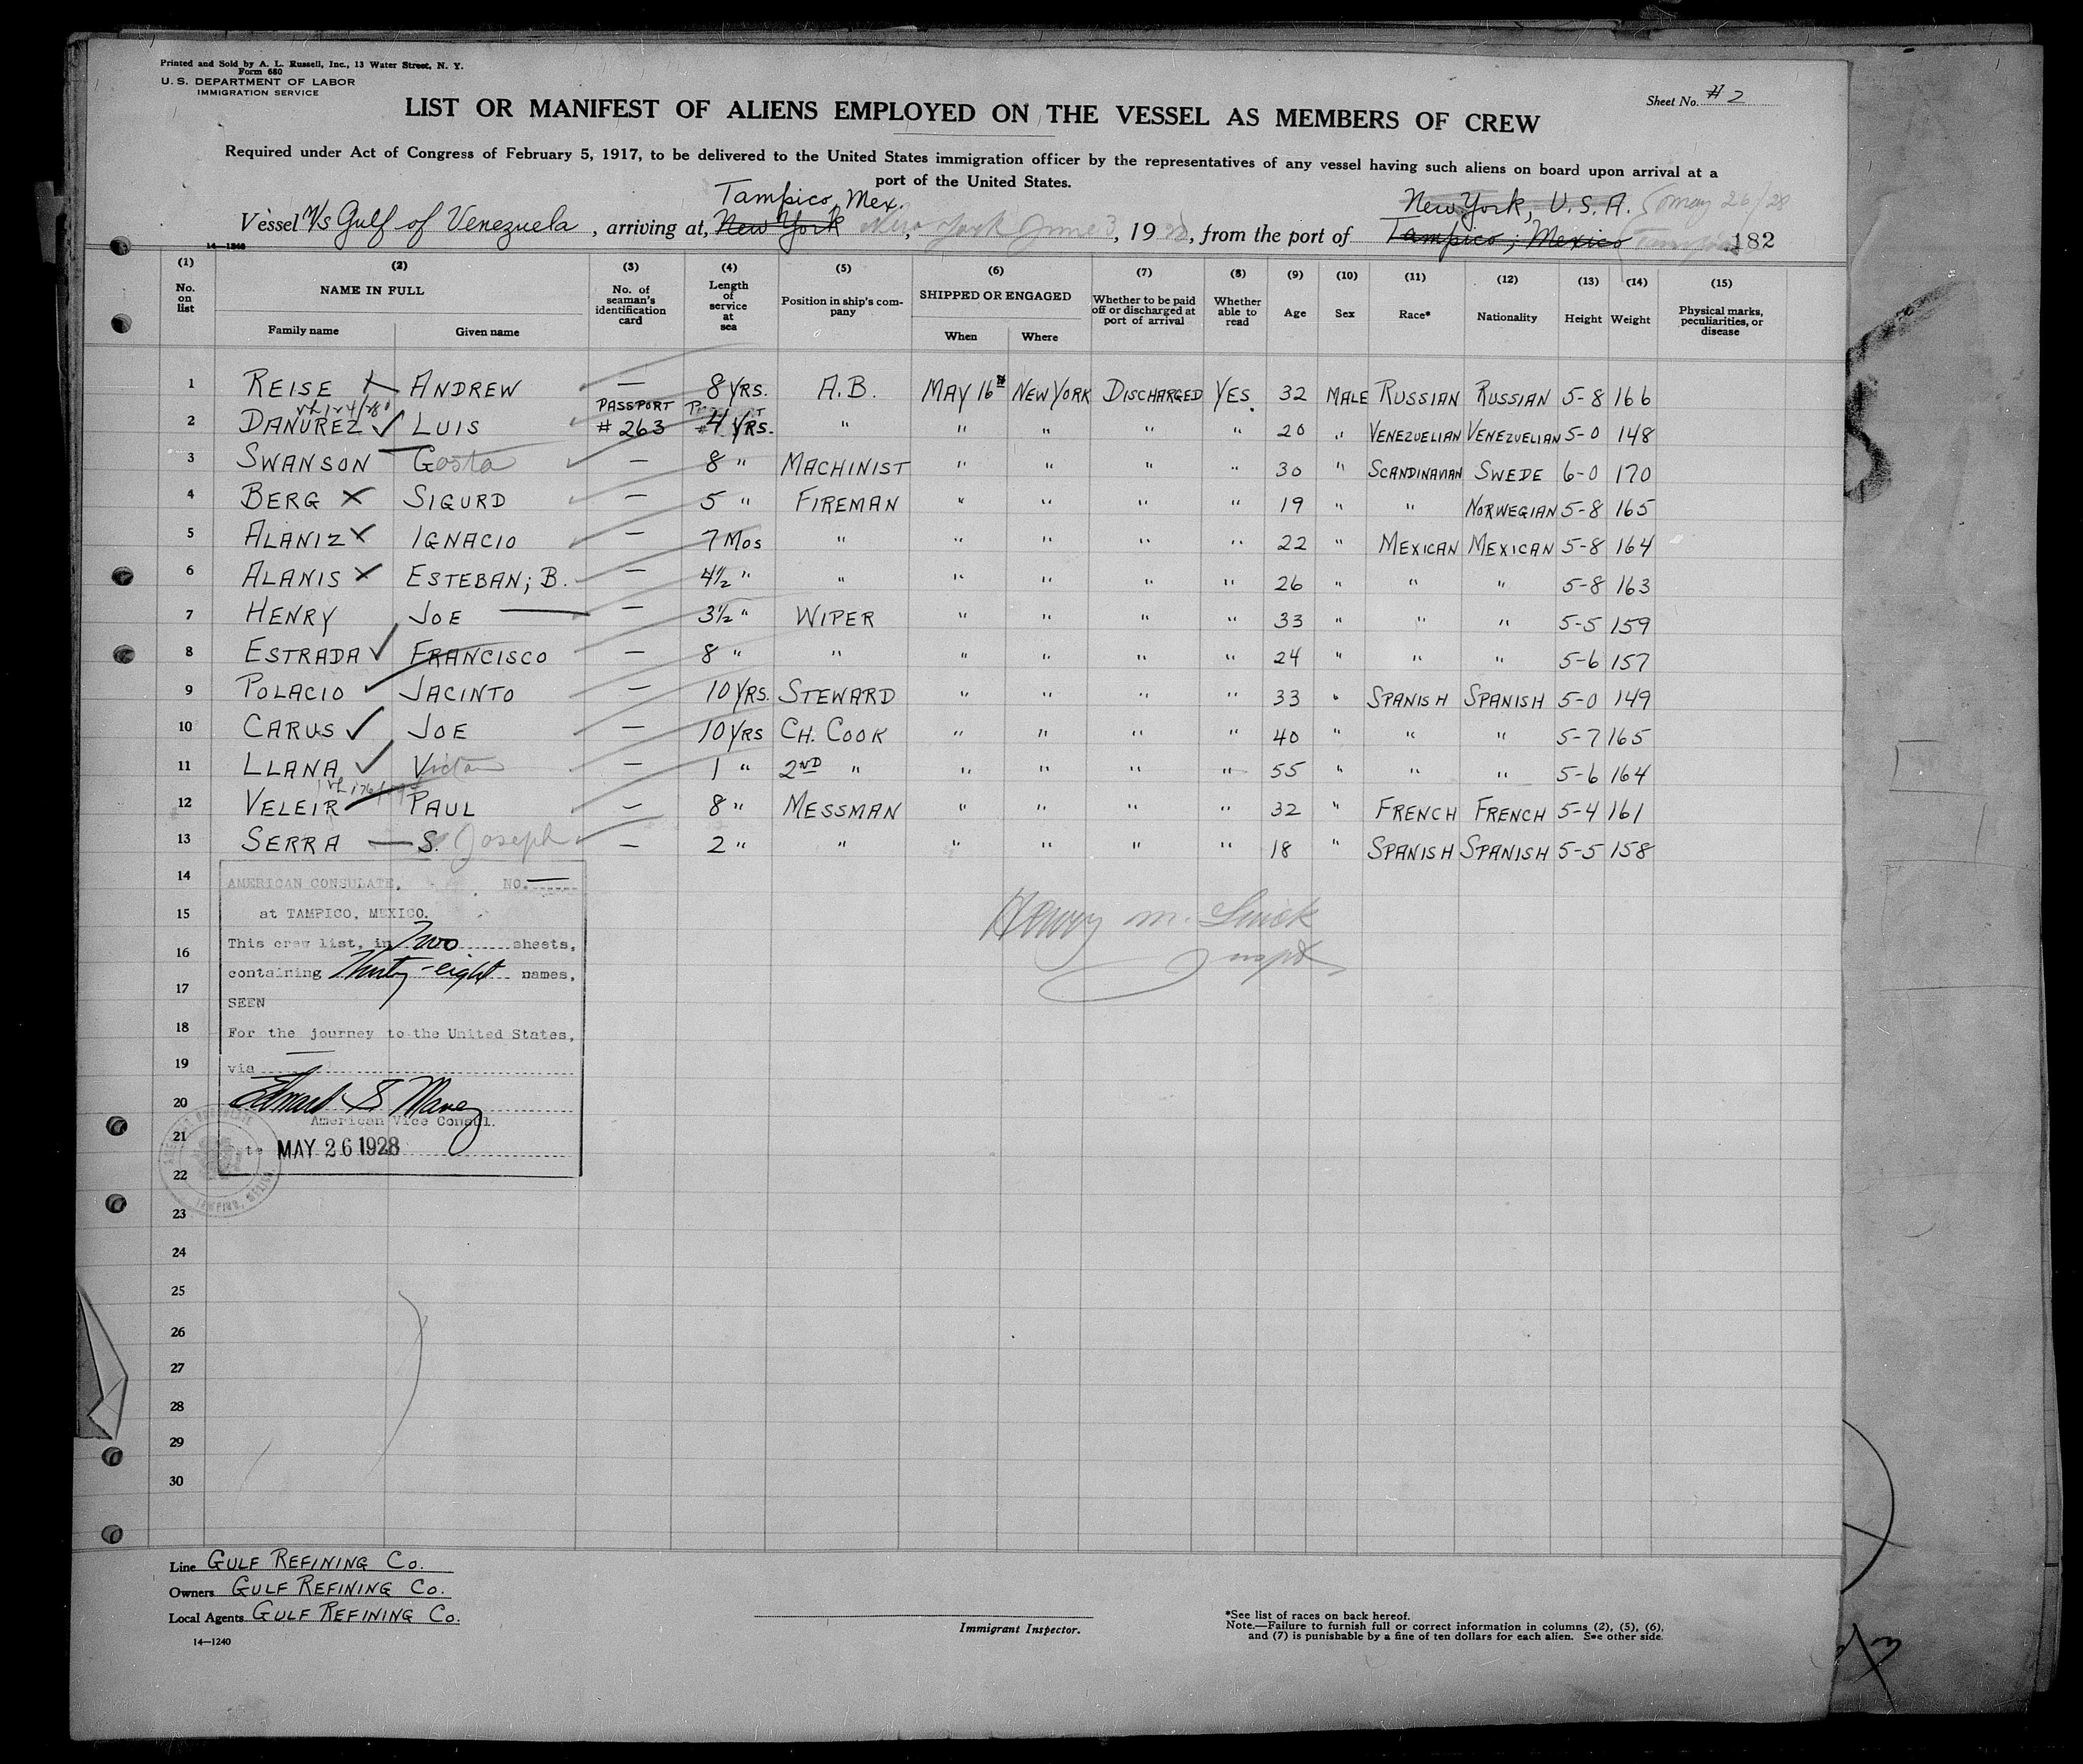 Printed and Sold by A. L. Russell, Inc., 13 Water Street, N. Y.
Form 680
U. S. DEPARTMENT OF LABOR
IMMIGRATION SERVICE
Sheet No. #2
LIST OR MANIFEST OF ALIENS EMPLOYED ON THE VESSEL AS MEMBERS OF CREW
Required under Act of Congress of February 5, 1917, to be delivered to the United States immigration officer by the representatives of any vessel having such aliens on board upon arrival at a
port of the United States.
Tampico, Mex. New York, U.S.A. May 26/28
Vessel M/s Gulf of Venezuela, arriving at, New York New York June 3, 1928, from the port of Tampico; Mexico Tampico 182
14-1240
(1) (2) (3) (4) (5) (6) (7) (8) (9) (10) (11) (12) (13) (14) (15)
No. on list NAME IN FULL No. of seaman's identification card Length of service at sea Position in ship's company SHIPPED OR ENGAGED Whether to be paid off or discharged at port of arrival Whether able to read Age Sex Race* Nationality Height Weight Physical marks, peculiarities, or disease
Family name Given name When Where
1 REISE ANDREW — 8 YRS. A.B. MAY 16th NEW YORK DISCHARGED YES 32 MALE RUSSIAN RUSSIAN 5-8 166
2 DANUREZ LUIS PASSPORT # 263 4 YRS. " " " " " 20 " VENEZUELIAN VENEZUELIAN 5-0 148
3 SWANSON Gosta — 8 " MACHINIST " " " " 30 " SCANDINAVIAN SWEDE 6-0 170
4 BERG SIGURD — 5 " FIREMAN " " " " 19 " " NORWEGIAN 5-8 165
5 ALANIZ IGNACIO — 7 MOS " " " " " 22 " MEXICAN MEXICAN 5-8 164
6 ALANIS ESTEBAN; B. — 4½ " " " " " " 26 " " " 5-8 163
7 HENRY JOE — 3½ " WIPER " " " " 33 " " " 5-5 159
8 ESTRADA FRANCISCO — 8 " " " " " " 24 " " " 5-6 157
9 POLACIO JACINTO — 10 YRS. STEWARD " " " " 33 " SPANISH SPANISH 5-0 149
10 CARUS JOE — 10 YRS CH. COOK " " " " 40 " " " 5-7 165
11 LLANA Victor — 1 " 2ND " " " " " 55 " " " 5-6 164
12 VELEIR PAUL — 8 " MESSMAN " " " " 32 " FRENCH FRENCH 5-4 161
13 SERRA S. Joseph — 2 " " " " " " 18 " SPANISH SPANISH 5-5 158
14
AMERICAN CONSULATE, NO. —
15
at TAMPICO, MEXICO.
Henry M.
This crew list, in Two sheets,
16
containing Thirty-eight names,
17
SEEN
18
For the journey to the United States,
19
via
20
Edward S Maney
American Vice Consul.
21
MAY 26 1928
22
23
24
25
26
27
28
29
30
Line GULF REFINING CO.
Owners GULF REFINING CO.
Local Agents GULF REFINING CO.
14—1240
Immigrant Inspector.
*See list of races on back hereof.
Note.—Failure to furnish full or correct information in columns (2), (5), (6),
and (7) is punishable by a fine of ten dollars for each alien. See other side.